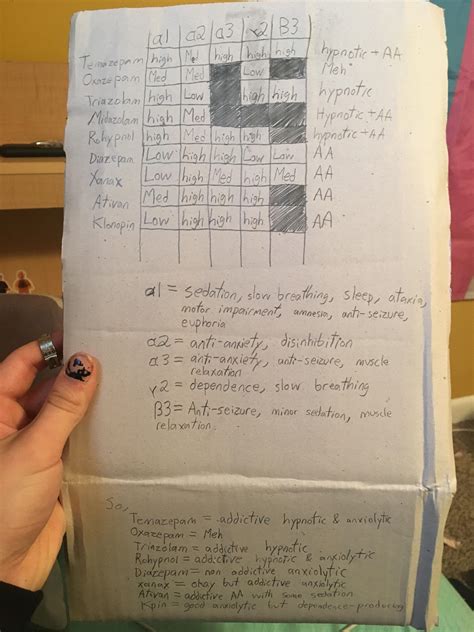 α1 α2 α3 γ2 B3
Temazepam high Med high high high hypnotic + AA
Oxazepam Med Med Low Meh
Triazolam high Low high high hypnotic
Midazolam high Med Hypnotic + AA
Rohypnol high Med high high hypnotic + AA
Diazepam Low high high Low Low AA
Xanax Low Med Med high Med AA
Ativan Med high high high AA
Klonopin Low high high high AA
α1 = sedation, slow breathing, sleep, ataxia,
motor impairment, amnesia, anti-seizure,
euphoria
α2 = anti-anxiety, disinhibition
α3 = anti-anxiety, anti-seizure, muscle
relaxation
γ2 = dependence, slow breathing
β3 = Anti-seizure, minor sedation, muscle
relaxation
So,
Temazepam = addictive hypnotic & anxiolytic
Oxazepam = Meh
Triazolam = addictive hypnotic
Rohypnol = addictive hypnotic & anxiolytic
Diazepam = non addictive anxiolytic
xanax = okay but addictive anxiolytic
Ativan = addictive AA with some sedation
Kpin = good anxiolytic but dependence-producing